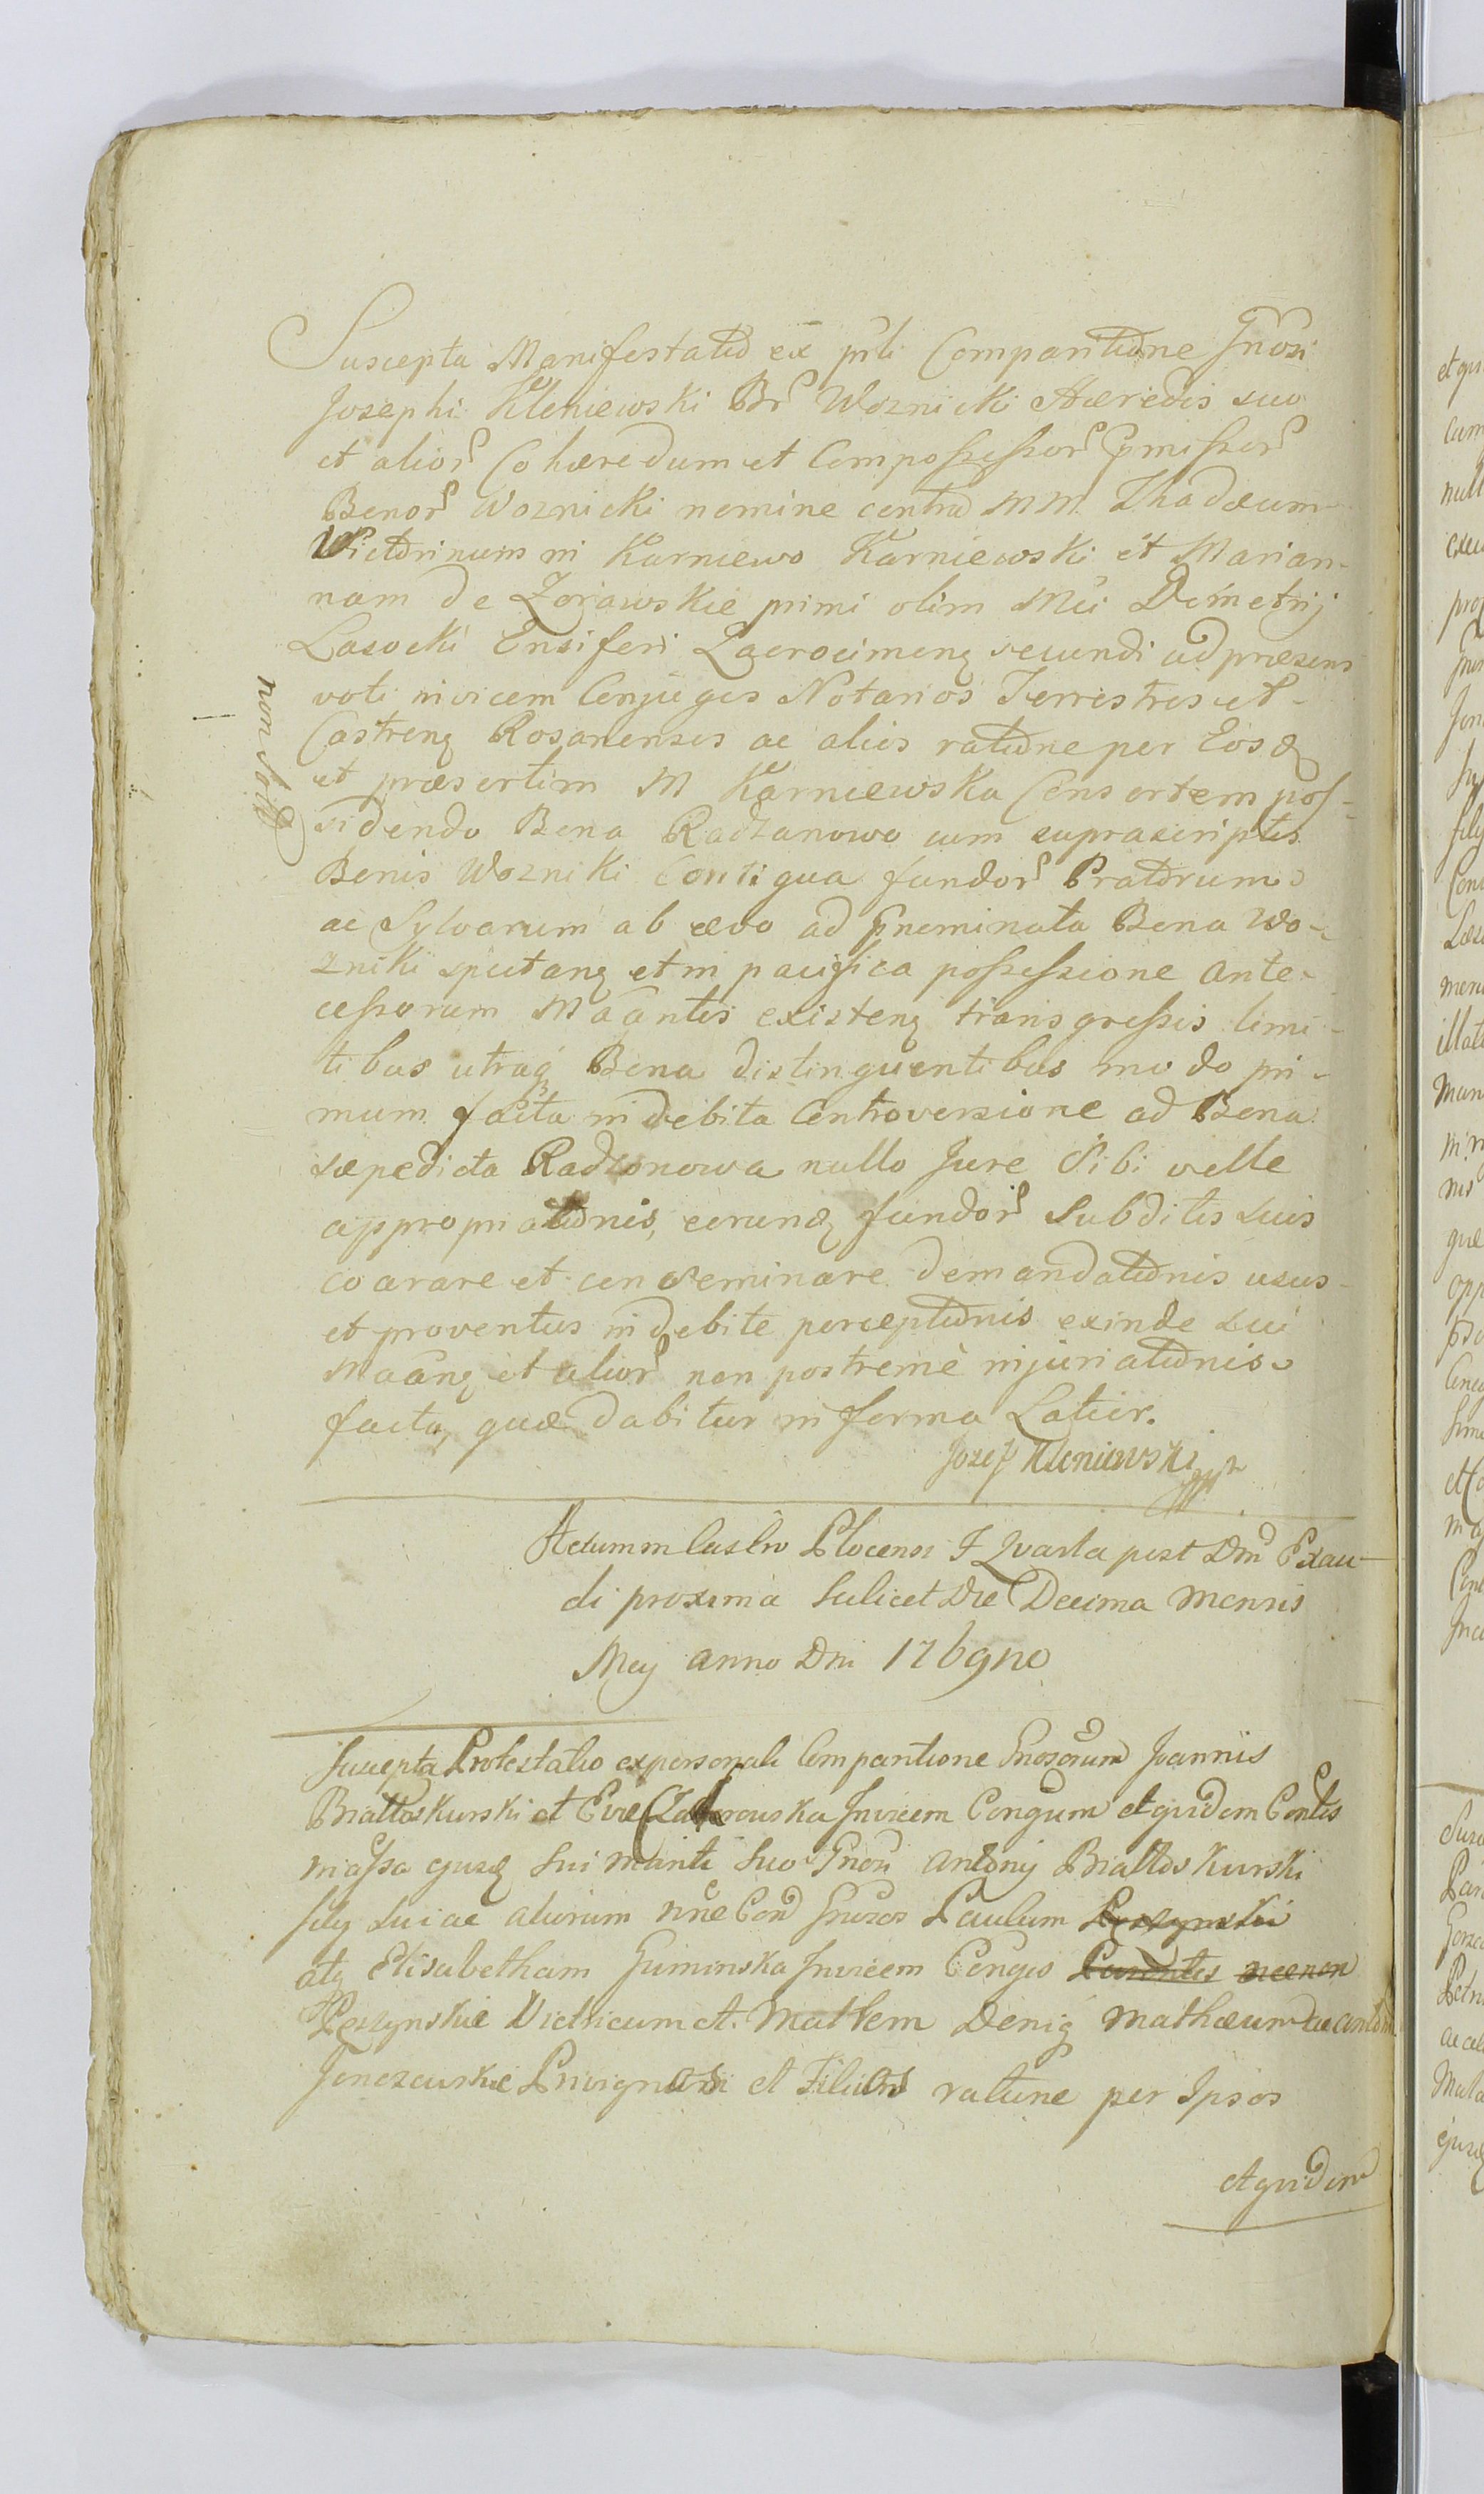 Suscepta Manifestatio ex prli Comparitione Gnosi
Josephi Kleniewski Br Woznicki Hæredis suo
et alior Cohæredum et Compossessor pmissor
Benor Woznicki nomine contra MM. Thadæum
Victorinum in Karniewo Karniewski et Marian-
nam de Zorawskie primi olim Mci Demetrij
Lasocki Ensiferi Zacrocimenq secundi ad præsens
voti invicem Conjuges Notarios Terrestres et
Castrenq Rosanenses ac alios ratione per Eosq
et præsertim M Karniewska Consortem pos-
sidendo Bona Radzanowo cum suprascriptis
Benis Wozniki Contigua fundor Pratorum
ac Sylvarum ab ævo ad pneminata Bona Wo-
zniki spectanq et in pacifica possessione ante-
cessorum Maantis existenq transgressis limi-
tibus utraq Bona distinguentibus modo pri-
mum facta indebita Controversione ad Bona
sæpedicta Radzonowa nullo Jure Sibi velle
appropriationis, eorunq fundor Subditis suis
coarare et conseminare demandationis usus
et proventus indebite perceptionis exinde sui
Maanq et alior non postremè injuriationis
facta, quæ dabitur in forma Latior.
Jozef Kleniewski
non Sortit
Actum in Castro Plocensi F Quarta post Dm Exau-
di proxima Scilicet Die Decima Mensis
Maij anno Dni 1769no
Suscepta Protestatio ex personali Comparitione Gnosorum Joannis
Białłoskurski et Evæ Invicem Conjgum et quidem Contis
in assa ejusq sui mariti suo Gnosi Antonij Białłoskurski
filij sui ac aliorum nne Con Gnosos Paulum Pęszynski
atq Elisabetham Guminska Invicem Conges Parentes necnon
Pęszynskie Victricum et Matrem Deniq Mathæum ac Anton
Jonczewskie Privignos et Filios ratione per Ipsos
et quidem